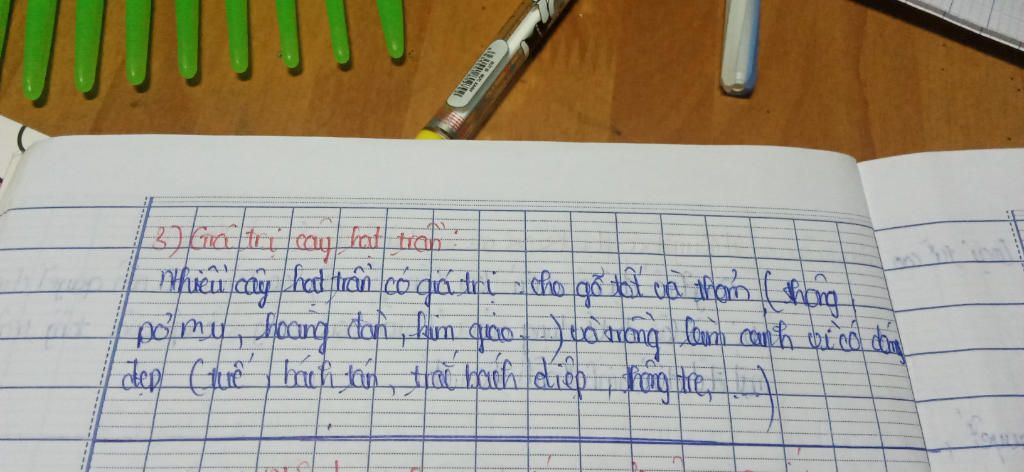 3) Giá trị cây hạt trần:
Nhiều cây hạt trần có giá trị: cho gỗ tốt và thơm (thông,
pơ mu, hoàng đàn, kim giao...) và trồng làm cảnh vì có dáng
đẹp (tuế, bách tán, trắc bách diệp, thông tre, ...)